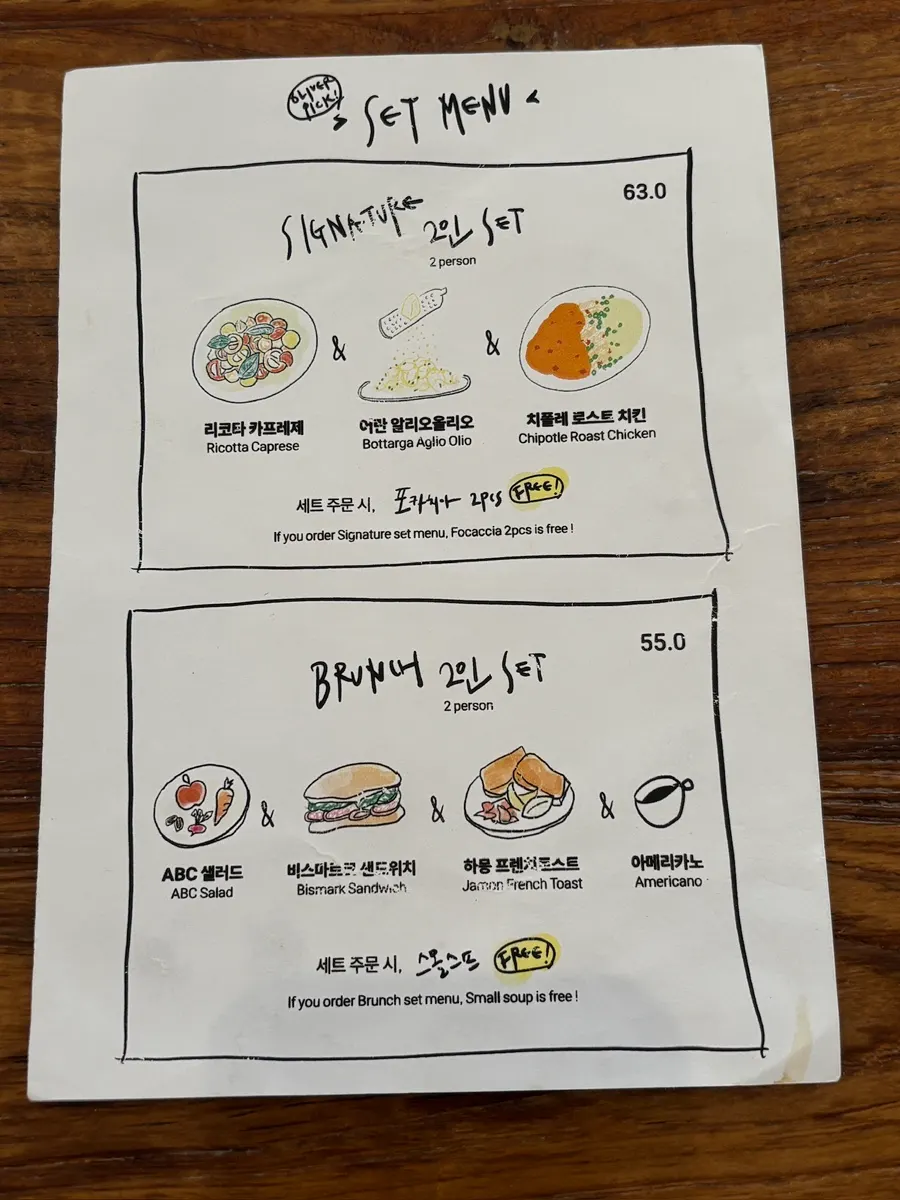 OLIVER
PICK!
> SET MENU <
63.0
SIGNATURE 2인 SET
2 person
& &
리코타 카프레제 어란 알리오올리오 치폴레 로스트 치킨
Ricotta Caprese Bottarga Aglio Olio Chipotle Roast Chicken
세트 주문 시, 포카치아 2pcs FREE!
If you order Signature set menu, Focaccia 2pcs is free !
55.0
BRUNCH 2인 SET
2 person
& & &
ABC 샐러드 비스마르크 샌드위치 하몽 프렌치토스트 아메리카노
ABC Salad Bismark Sandwich Jamon French Toast Americano
세트 주문 시, 스몰스프 FREE!
If you order Brunch set menu, Small soup is free !